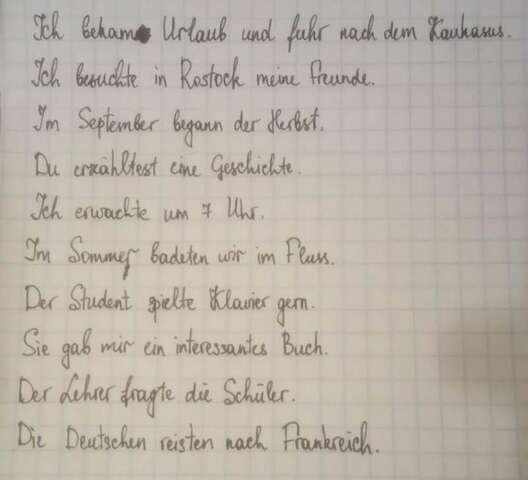 Ich bekam Urlaub und fuhr nach dem Kaukasus.
Ich besuchte in Rostock meine Freunde.
Im September begann der Herbst.
Du erzähltest eine Geschichte.
Ich erwachte um 7 Uhr.
Im Sommer badeten wir im Fluss.
Der Student spielte Klavier gern.
Sie gab mir ein interessantes Buch.
Der Lehrer fragte die Schüler.
Die Deutschen reisten nach Frankreich.